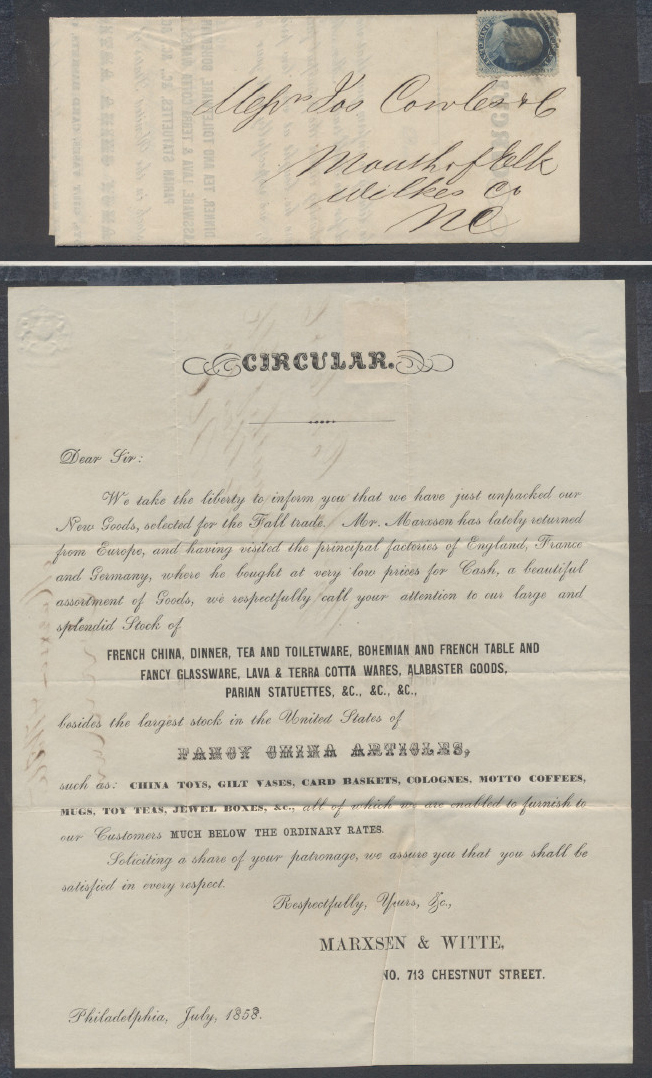 Messrs Jos Cowles & C
Mouth of Elk
Wilkes Co
NC
CIRCULAR.
Dear Sir:
We take the liberty to inform you that we have just unpacked our
New Goods, selected for the Fall trade. Mr. Marxsen has lately returned
from Europe, and having visited the principal factories of England, France
and Germany, where he bought at very low prices for Cash, a beautiful
assortment of Goods, we respectfully call your attention to our large and
splendid Stock of
FRENCH CHINA, DINNER, TEA AND TOILETWARE, BOHEMIAN AND FRENCH TABLE AND
FANCY GLASSWARE, LAVA & TERRA COTTA WARES, ALABASTER GOODS,
PARIAN STATUETTES, &C., &C., &C.,
besides the largest stock in the United States of
FANCY CHINA ARTICLES,
such as: CHINA TOYS, GILT VASES, CARD BASKETS, COLOGNES, MOTTO COFFEES,
MUGS, TOY TEAS, JEWEL BOXES, &C., all of which we are enabled to furnish to
our Customers MUCH BELOW THE ORDINARY RATES.
Soliciting a share of your patronage, we assure you that you shall be
satisfied in every respect.
Respectfully, Yours, &c.,
MARXSEN & WITTE,
NO. 713 CHESTNUT STREET.
Philadelphia, July, 1858.